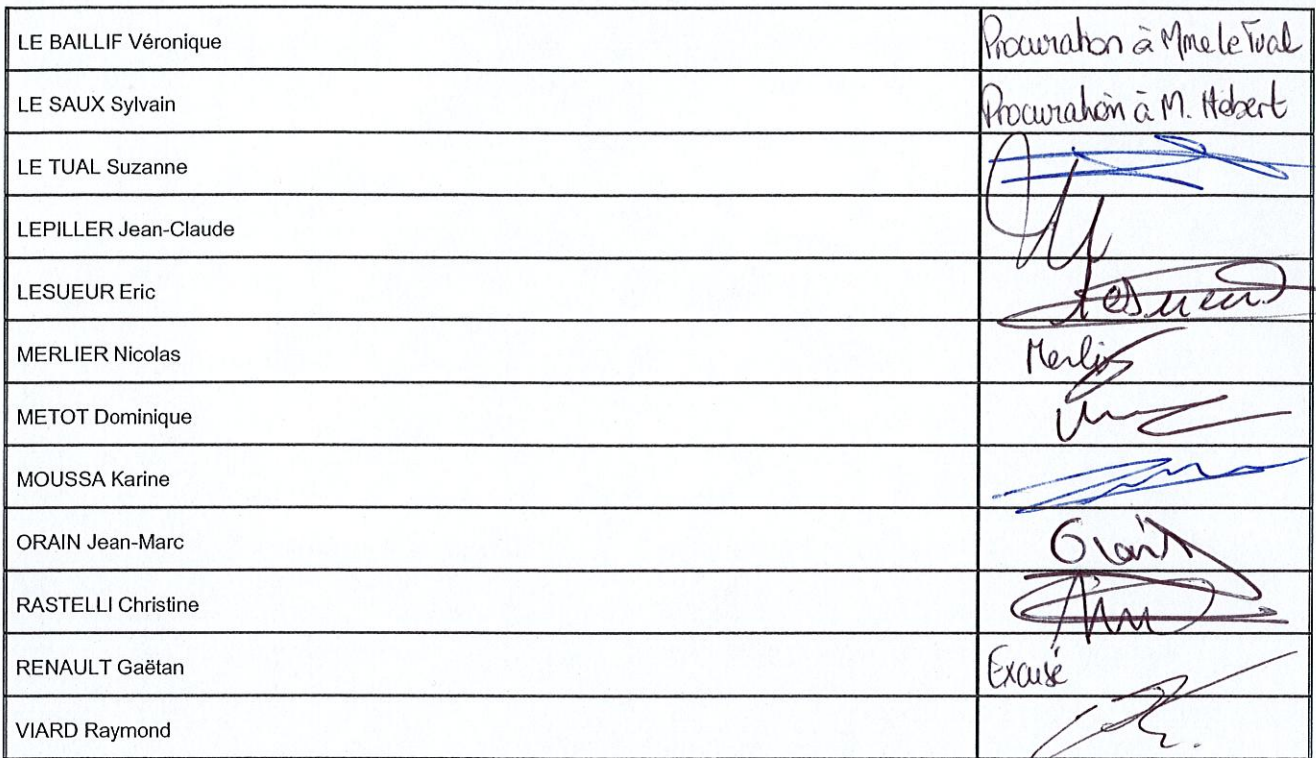 LE BAILLIF Véronique Procuration à Mme le Tual
LE SAUX Sylvain Procuration à M. Hébert
LE TUAL Suzanne
LEPILLER Jean-Claude
LESUEUR Eric Lesueur
MERLIER Nicolas Merlier
METOT Dominique
MOUSSA Karine
ORAIN Jean-Marc Orain
RASTELLI Christine
RENAULT Gaëtan Excusé
VIARD Raymond